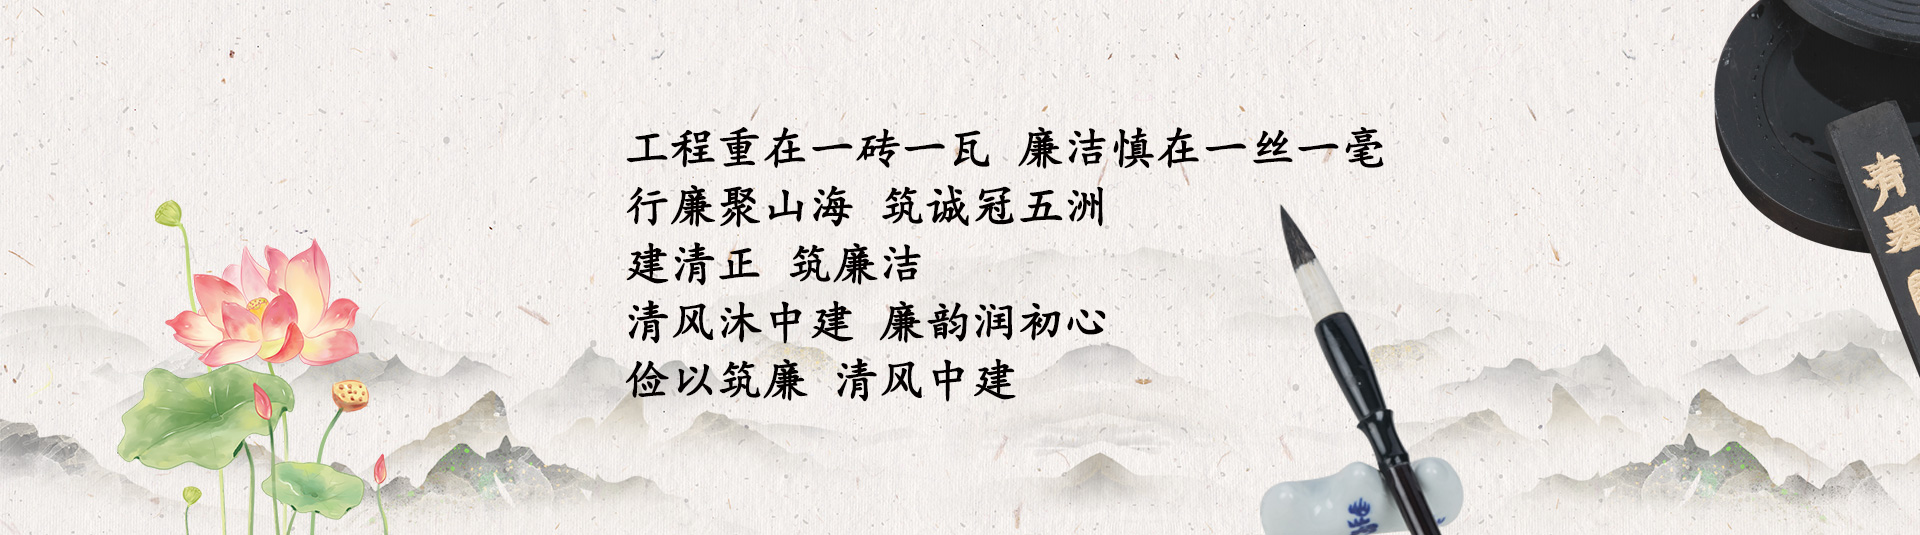 工程重在一砖一瓦 廉洁慎在一丝一毫
行廉聚山海 筑诚冠五洲
建清正 筑廉洁
清风沐中建 廉韵润初心
俭以筑廉 清风中建